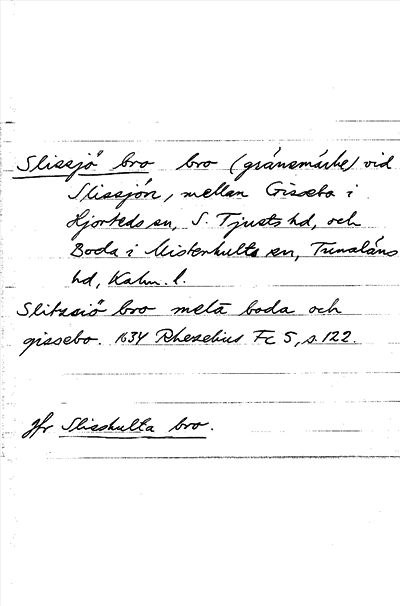 Slissjö bro bro (gränsmärke) vid
Slissjön, mellan Gissebo i
Hjorteds sn, S. Tjusts hd, och
Boda i Misterhults sn, Tunaläns
hd, Kalm. l.
Slitzsiö bro melä boda och
gissebo. 1634 Rhezelius Fc 5, s. 122.
Jfr Slisshulta bro.